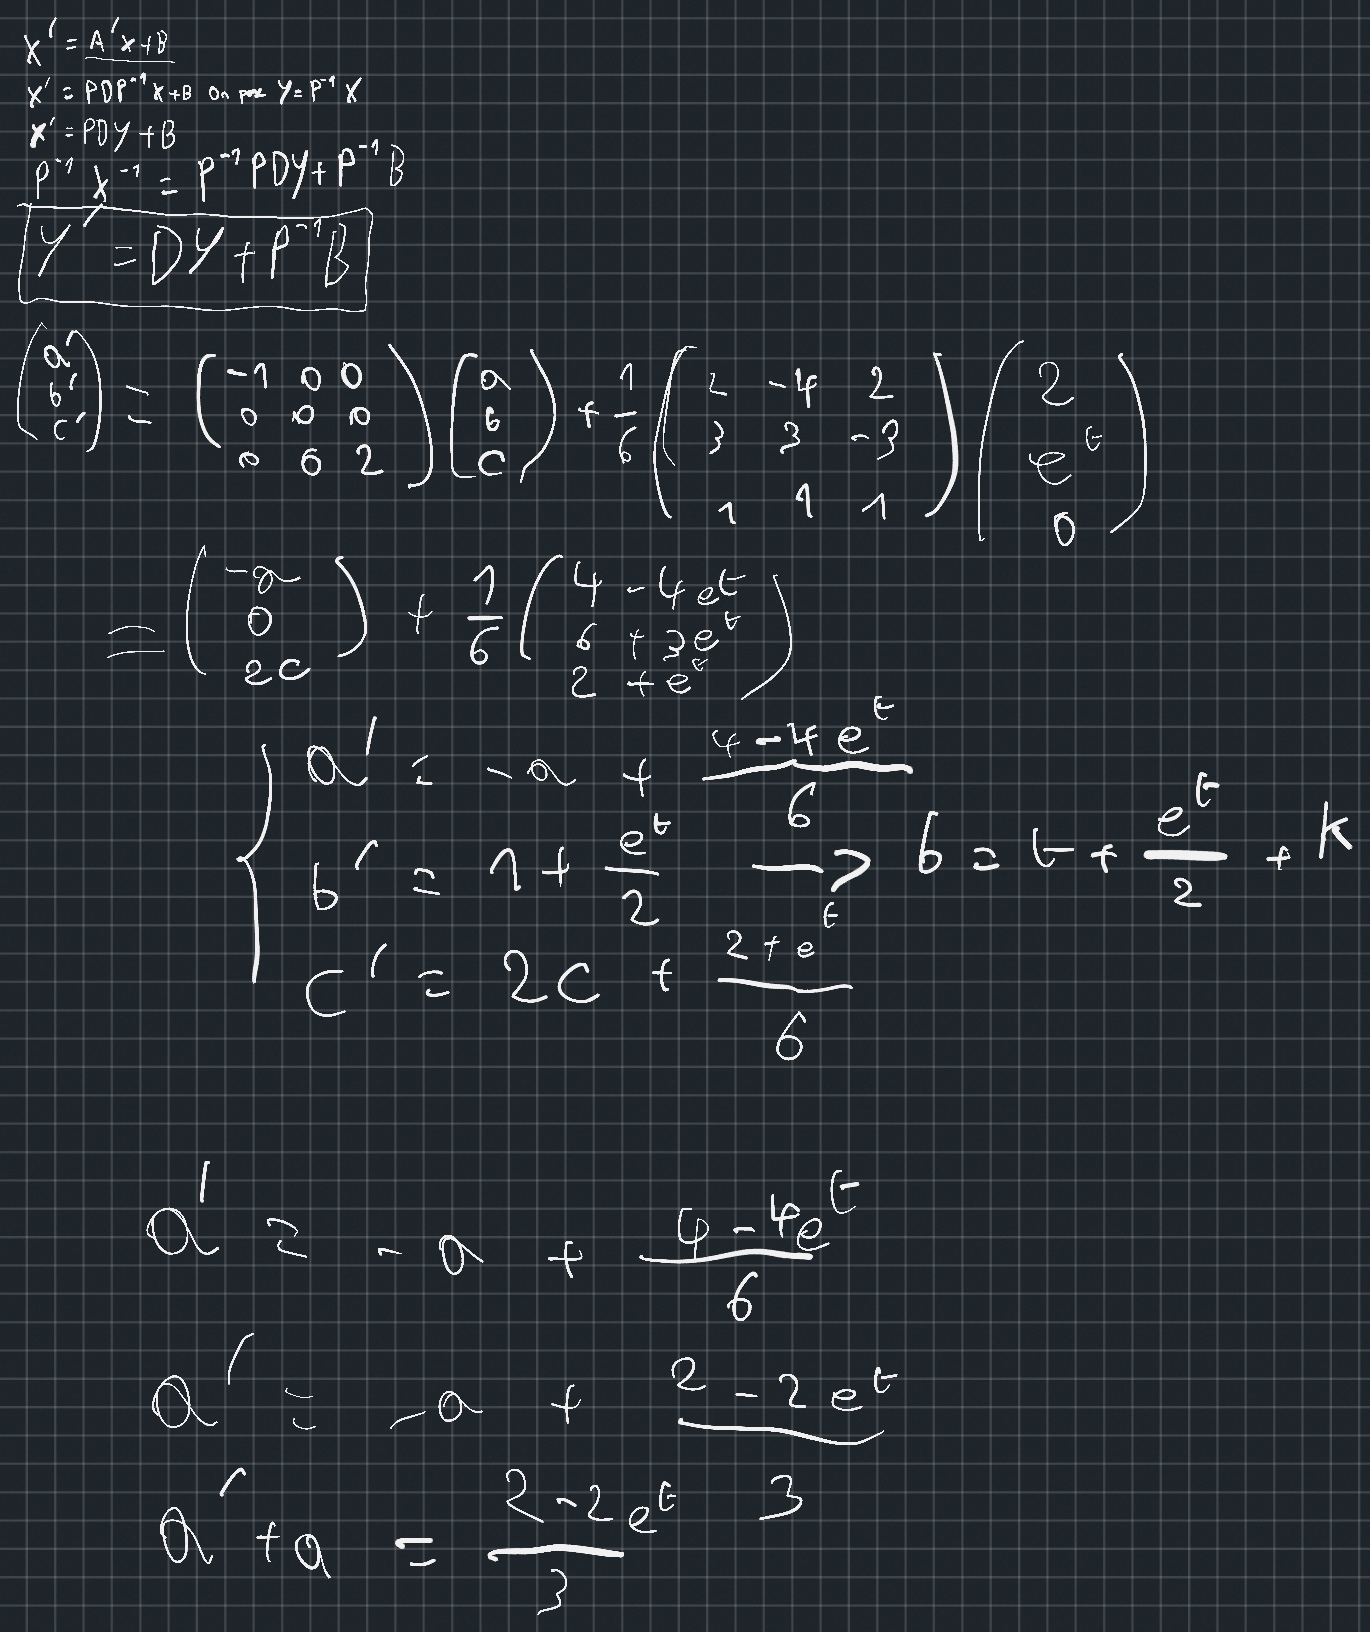 X' = A'x+B
X' = PDP⁻¹X+B On pose Y=P⁻¹X
X' = PDY+B
P⁻¹X⁻¹ = P⁻¹PDY+P⁻¹B
Y' = DY+P⁻¹B
(a' b' c') = (-1 0 0 / 0 0 0 / 0 0 2) (a b c) + 1/6 (2 -4 2 / 3 3 -3 / 1 1 1) (2 e^t 0)
= (-a 0 2c) + 1/6 (4 - 4e^t / 6 + 3e^t / 2 + e^t)
{ a' = -a + (4-4e^t)/6
b' = 1 + e^t/2 → b = t + e^t/2 + k
c' = 2c + (2+e^t)/6
a' = -a + (4-4e^t)/6
a' = -a + (2-2e^t)/3
a'+a = (2-2e^t)/3